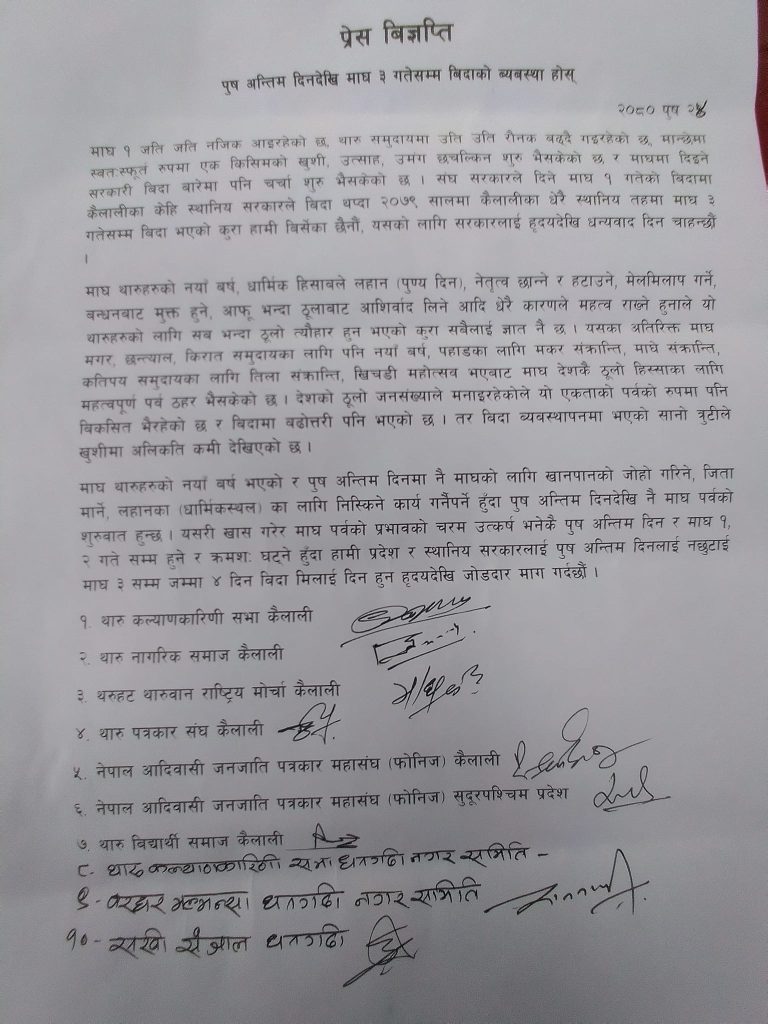 प्रेस बिज्ञप्ति
पुष अन्तिम दिनदेखि माघ ३ गतेसम्म बिदाको ब्यबस्था होस्
२०८० पुष २४
माघ १ जति जति नजिक आइरहेको छ, थारु समुदायमा उति उति रौनक बढ्दै गइरहेको छ, मान्छेमा
स्वत:स्फूर्त रुपमा एक किसिमको खुशी, उत्साह, उमंग छचल्किन शुरु भैसकेको छ र माघमा दिइने
सरकारी बिदा बारेमा पनि चर्चा शुरु भैसकेको छ । संघ सरकारले दिने माघ १ गतेको बिदामा
कैलालीका केहि स्थानिय सरकारले बिदा थप्दा २०७९ सालमा कैलालीका धेरै स्थानिय तहमा माघ ३
गतेसम्म बिदा भएको कुरा हामी बिर्सेका छैनौं, यसको लागि सरकारलाई हृदयदेखि धन्यवाद दिन चाहन्छौं
।
माघ थारुहरुको नयाँ बर्ष, धार्मिक हिसाबले लहान (पुण्य दिन), नेतृत्व छान्ने र हटाउने, मेलमिलाप गर्ने,
बन्धनबाट मुक्त हुने, आफू भन्दा ठूलाबाट आशिर्वाद लिने आदि धेरै कारणले महत्व राख्ने हुनाले यो
थारुहरुको लागि सब भन्दा ठूलो त्यौहार हुन भएको कुरा सबैलाई ज्ञात नै छ । यसका अतिरिक्त माघ
मगर, छन्त्याल, किरात समुदायका लागि पनि नयाँ बर्ष, पहाडका लागि मकर संक्रान्ति, माघे संक्रान्ति,
कतिपय समुदायका लागि तिला संक्रान्ति, खिचडी महोत्सव भएबाट माघ देशकै ठूलो हिस्साका लागि
महत्वपूर्ण पर्व ठहर भैसकेको छ । देशको ठूलो जनसंख्याले मनाइरहेकोले यो एकताको पर्वको रुपमा पनि
बिकसित भैरहेको छ र बिदामा बढोत्तरी पनि भएको छ । तर बिदा ब्यवस्थापनमा भएको सानो त्रुटीले
खुशीमा अलिकति कमी देखिएको छ ।
माघ थारुहरुको नयाँ बर्ष भएको र पुष अन्तिम दिनमा नै माघको लागि खानपानको जोहो गरिने, जिता
मार्ने, लहानका (धार्मिकस्थल) का लागि निस्किने कार्य गर्नैपर्ने हुँदा पुष अन्तिम दिनदेखि नै माघ पर्वको
शुरुवात हुन्छ । यसरी खास गरेर माघ पर्वको प्रभावको चरम उत्कर्ष भनेकै पुष अन्तिम दिन र माघ १,
२ गते सम्म हुने र क्रमश: घट्ने हुँदा हामी प्रदेश र स्थानिय सरकारलाई पुष अन्तिम दिनलाई नछुटाई
माघ ३ सम्म जम्मा ४ दिन विदा मिलाई दिन हुन हृदयदेखि जोडदार माग गर्दछौं ।
१. थारु कल्याणकारिणी सभा कैलाली
२. थारु नागरिक समाज कैलाली
३. थरुहट थारुवान राष्ट्रिय मोर्चा कैलाली
४. थारु पत्रकार संघ कैलाली
५. नेपाल आदिवासी जनजाति पत्रकार महासंघ (फोनिज) कैलाली
६. नेपाल आदिवासी जनजाति पत्रकार महासंघ (फोनिज) सुदूरपश्चिम प्रदेश
७. थारु बिद्यार्थी समाज कैलाली
८- थारु कल्याणकारिणी सभा धनगढी नगर समिति -
९- बरघर भल्मन्सा धनगढी नगर समिति
१०- सखी संजाल धनगढी